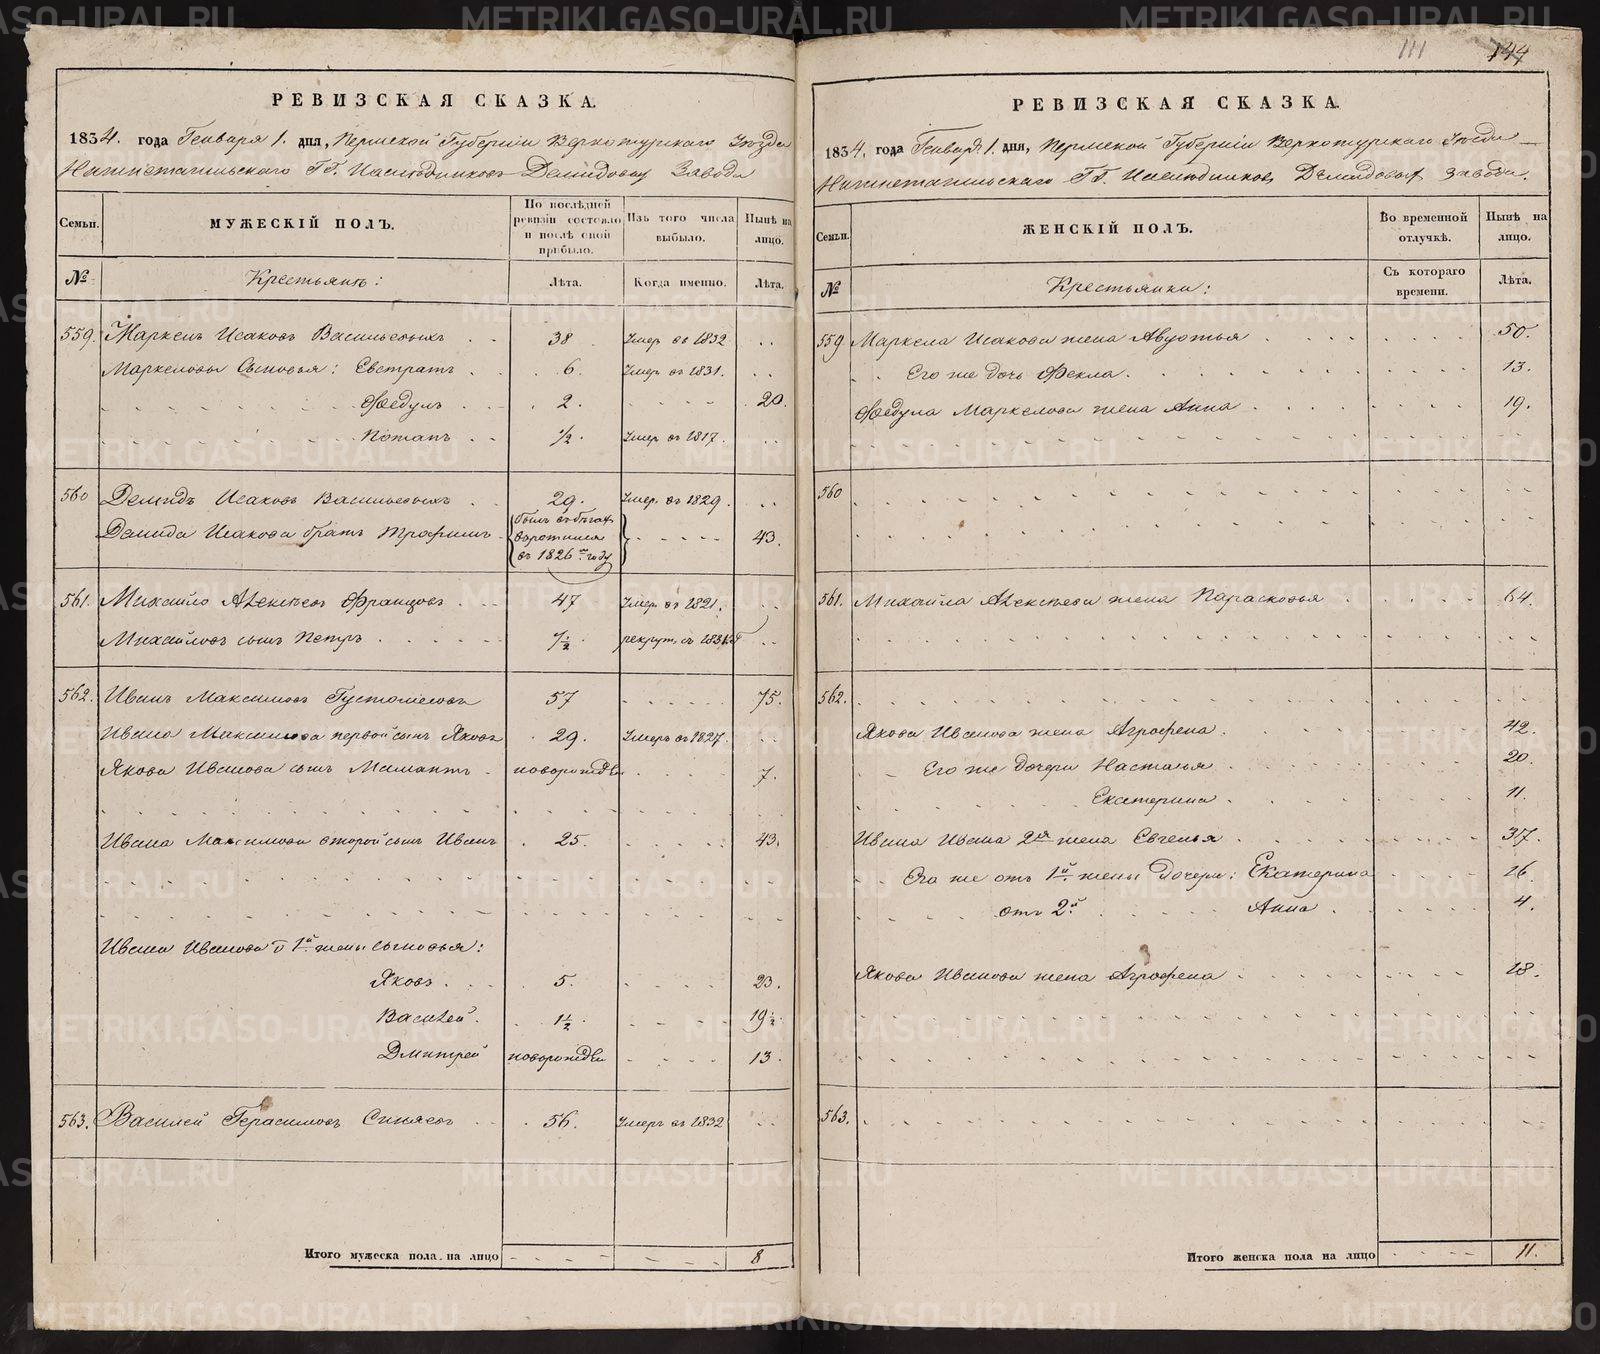 111 144
РЕВИЗСКАЯ СКАЗКА.
1834. года Генваря 1. дня, Пермской Губерніи Верхотурскаго Уѣзда
Нижнетагильскаго ГГ. Наслѣдниковъ Демидовыхъ Завода
Семьи.
МУЖЕСКІЙ ПОЛЪ.
По послѣдней ревизіи состояло и послѣ оной прибыло.
Изъ того числа выбыло.
Нынѣ на лицо.
№
Крестьянѣ:
Лѣта.
Когда именно.
Лѣта.
559. Маркелъ Исаковъ Васильевыхъ 38 Умер. въ 1832
Маркеловы Сыновья: Евстратъ 6. Умер. въ 1831.
Ѳедулъ 2. 20.
Потапъ 1/2. Умер. въ 1817.
560 Демидъ Исаковъ Васильевыхъ 29. Умер. въ 1829.
Демида Исакова братъ Трофимъ былъ въ бѣгахъ воротился въ 1826м году 43.
561. Михайло Алексѣевъ Францовъ 47 Умер. въ 1821.
Михайловъ сынъ Петръ 7 1/2 рекрут. съ 1831
562. Иванъ Максимовъ Густомесовъ 57 75.
Ивана Максимова первой сынъ Яковъ 29. Умеръ въ 1827.
Якова Иванова сынъ Мамантъ новорожде 7.
Ивана Максимова второй сынъ Иванъ 25. 43.
Ивана Иванова 1й жены сыновья:
Яковъ 5. 23.
Василей 1 1/2 19 1/2
Дмитрей новорожде 13.
563. Василей Герасимовъ Синяевъ 56. Умеръ въ 1832
Итого мужеска пола на лицо 8
РЕВИЗСКАЯ СКАЗКА.
1834. года Генваря 1. дня, Пермской Губерніи Верхотурскаго Уѣзда
Нижнетагильскаго ГГ. Наслѣдниковъ Демидовыхъ завода.
Семьи.
ЖЕНСКІЙ ПОЛЪ.
Во временной отлучкѣ.
Нынѣ на лицо.
№
Крестьянки:
Съ котораго времени.
Лѣта.
559 Маркела Исакова жена Авдотья 50.
Его же дочь Фекла. 13.
Ѳедула Маркелова жена Анна 19.
560
561. Михайла Алексѣева жена Парасковья 64.
562.
Якова Иванова жена Агрофена 42.
Его же дочери Настасья 20.
Екатерина 11.
Ивана Ивана 2я жена Евгенья 37.
Его же отъ 1й жены дочери: Екатерина 16.
отъ 2й Анна 4.
Якова Иванова жена Агрофена 18.
563.
Итого женска пола на лицо 11.